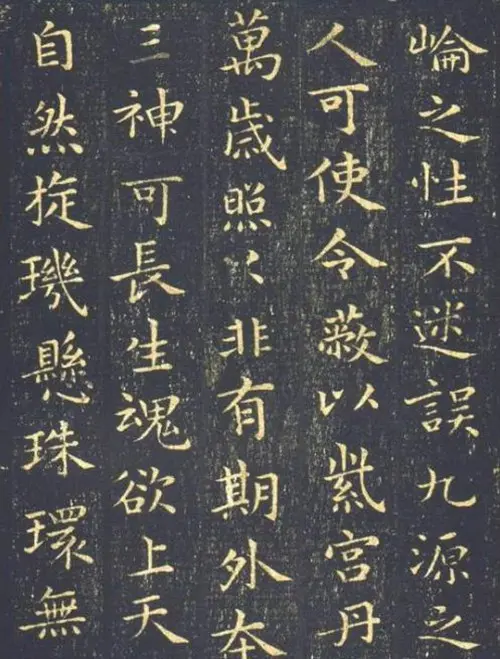 崘之性不迷誤九源之
人可使令蔽以紫宮丹
萬歲照〻非有期外夲
三神可長生魂欲上天
自然旋璣懸珠環無